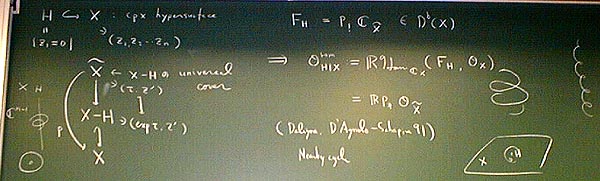 H ↪ X : cpx hypersurface
{z₁=0} ∋ (z₁, z₂ … zₙ)
X̃ ← X-H の universal cover
∋ (τ, z')
X-H ∋ (exp τ, z')
p
X
X H
F_H = p₁ ℂ_X̃ ∈ Dᵇ(X)
⇒ O_{H|X} = Rℋom_{ℂ_X}(F_H, O_X)
= Rp_* O_X̃
(Deligne, D'Agnolo-Schapira 91)
Nearby cycle
X H